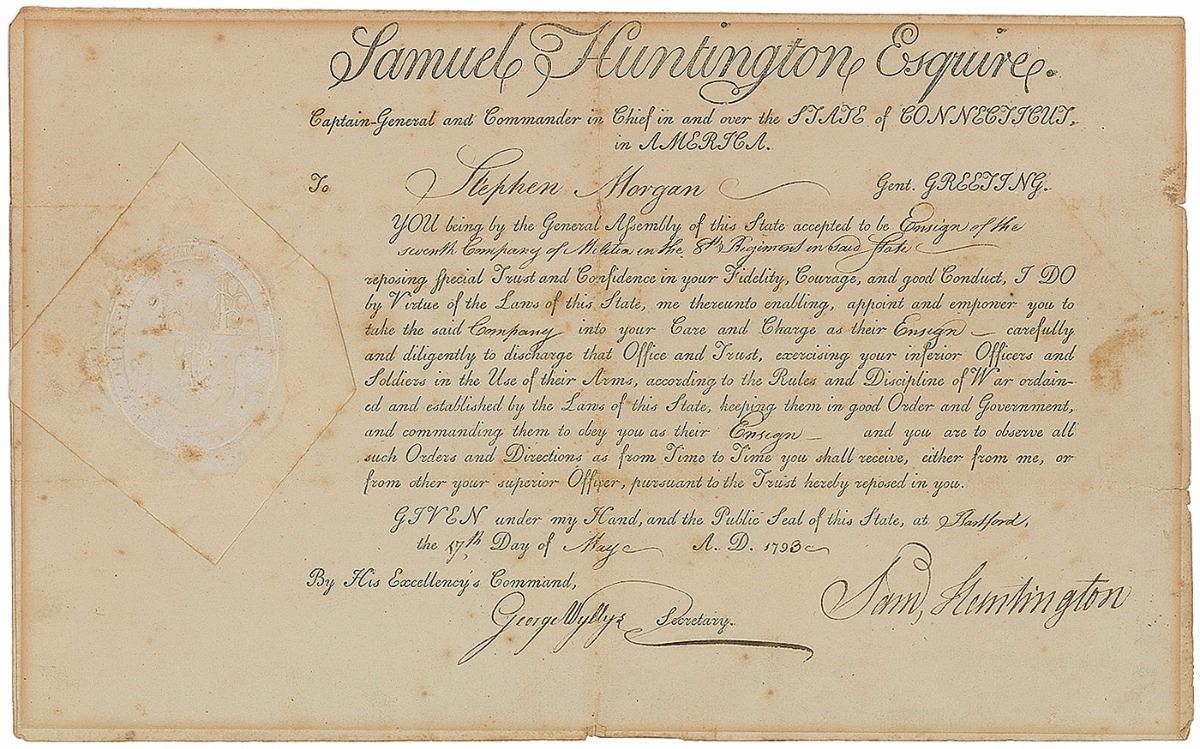 Samuel Huntington Esquire.
Captain-General and Commander in Chief in and over the STATE of CONNECTICUT,
in AMERICA.
To Stephen Morgan Gent. GREETING.
YOU being by the General Assembly of this State accepted to be Ensign of the
seventh Company of Militia in the 8th Regiment in said State
reposing special Trust and Confidence in your Fidelity, Courage, and good Conduct, I DO
by Virtue of the Laws of this State, me thereunto enabling, appoint and empower you to
take the said Company into your Care and Charge as their Ensign — carefully
and diligently to discharge that Office and Trust, exercising your inferior Officers and
Soldiers in the Use of their Arms, according to the Rules and Discipline of War ordain-
ed and established by the Laws of this State, keeping them in good Order and Government,
and commanding them to obey you as their Ensign — and you are to observe all
such Orders and Directions as from Time to Time you shall receive, either from me, or
from other your superior Officer, pursuant to the Trust hereby reposed in you.
GIVEN under my Hand, and the Public Seal of this State, at Hartford,
the 17th Day of May A. D. 1793
By His Excellency's Command,
George Wyllys Secretary.
Sam, Huntington